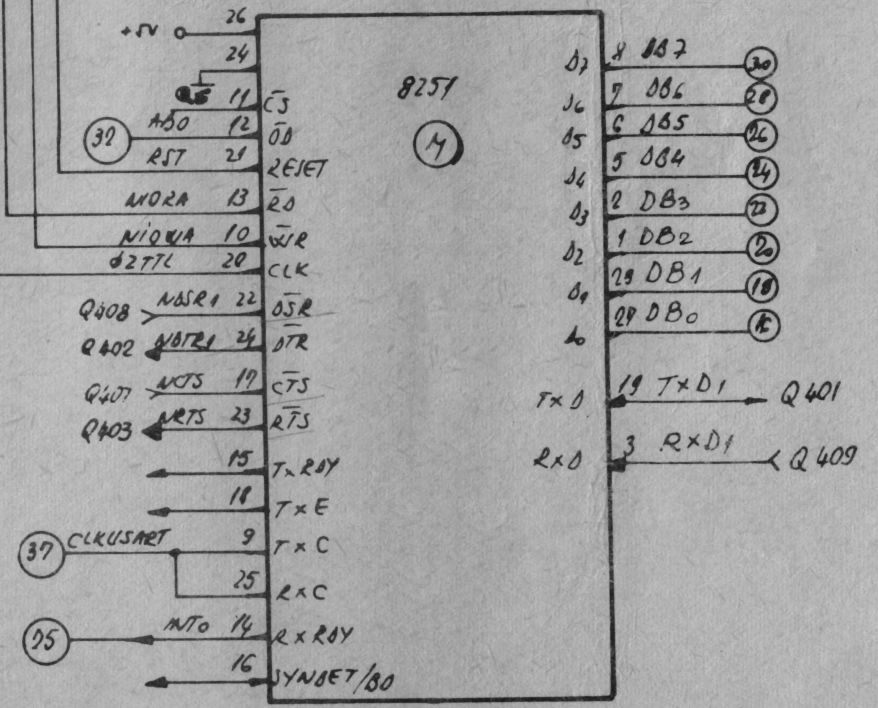 +5V 26
24
11 CS
32 AB0 12 OD
RST 21 RESET
NIORA 13 RD
NIOWA 10 WR
Φ2TTL 20 CLK
Q408 NDSR1 22 DSR
Q402 NDTR1 24 DTR
Q407 NCTS 17 CTS
Q403 NRTS 23 RTS
15 TxRDY
18 TxE
37 CLKUSART 9 TxC
25 RxC
INT0 14 RxRDY
16 SYNDET/BD
8251
D7 8 DB7 30
D6 7 DB6 28
D5 6 DB5 26
D4 5 DB4 24
D3 2 DB3 22
D2 1 DB2 20
D1 DB1 18
D0 DB0
TxD 19 TxD1 Q401
RxD 3 RxD1 Q409